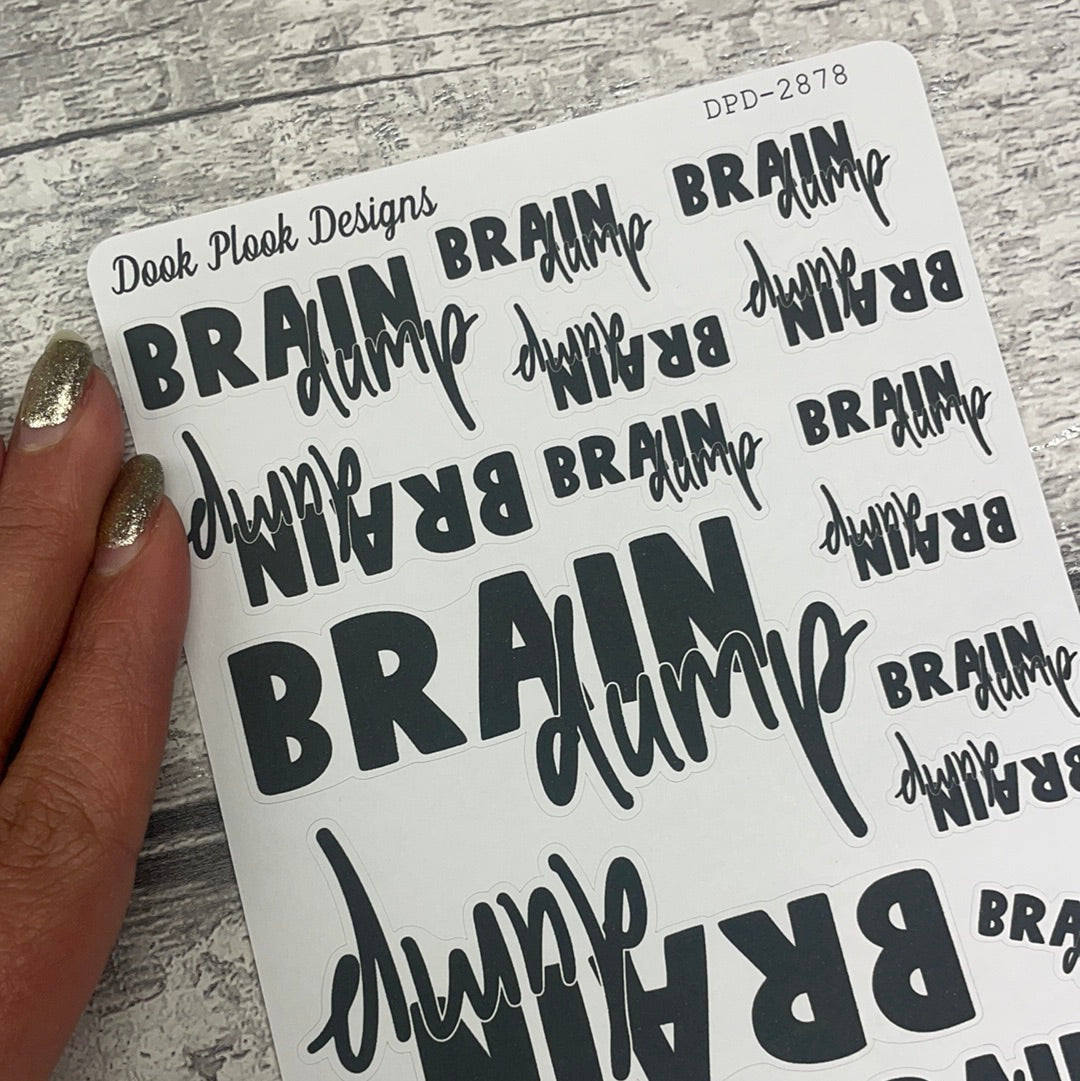 DPD-2878
Dook Plook Designs
BRAIN
dump
BRAIN
dump
BRAIN
dump
BRAIN
dump
BRAIN
dump
BRAIN
dump
BRAIN
dump
BRAIN
dump
BRAIN
dump
BRAIN
dump
BRAIN
dump
BRAIN
dump
BRAIN
dump
BRA